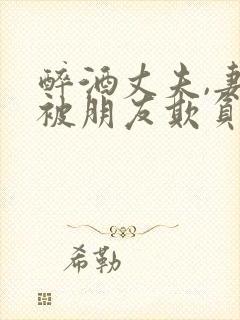 醉酒丈夫,妻
被朋友欺负
希勒